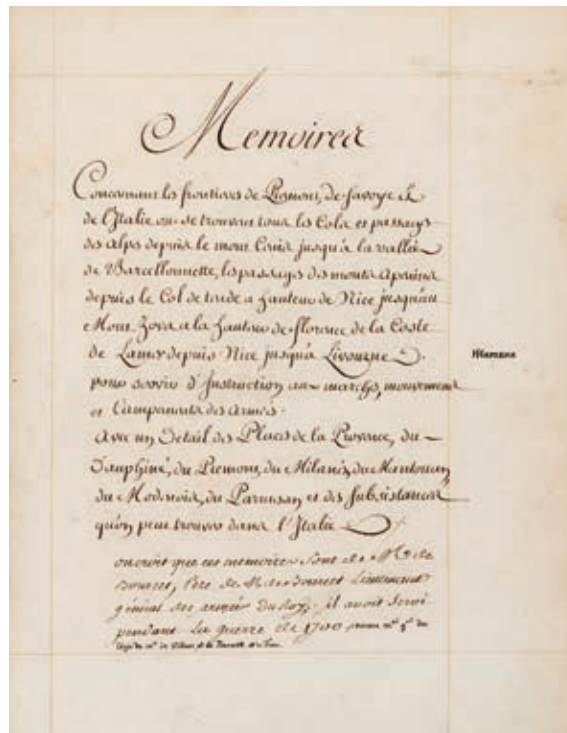 Memoires
Concernant les frontieres de Piemont, de Savoye &
de l'Italie ou se trouvent tous les Cols et passages
des alpes depuis le mont Cenis jusqu'a la vallée
de Barcellonnette, les passages des monts apenins
depuis le Col de tende a hauteur de Nice jusqu'au
Mont Zova a la hauteur de florence de la Coste
de Lamer depuis Nice jusqu'a Livourne
pour servir d'Instruction aux marches, mouvemens
et Campements des armées.
avec un Detail des Places de la Provence, du
Dauphiné, du Piemont, du Milanis, du Mantouan,
du Modenois, du Parmesan et des Subsistances
qu'on peut trouver dans l'Italie
on croit que ces memoires sont de Mr. de
Bourcet, Pere de M. de Bourcet Lieutenant
général des armées du Roy. il avoit servi
pendant la guerre de 1700